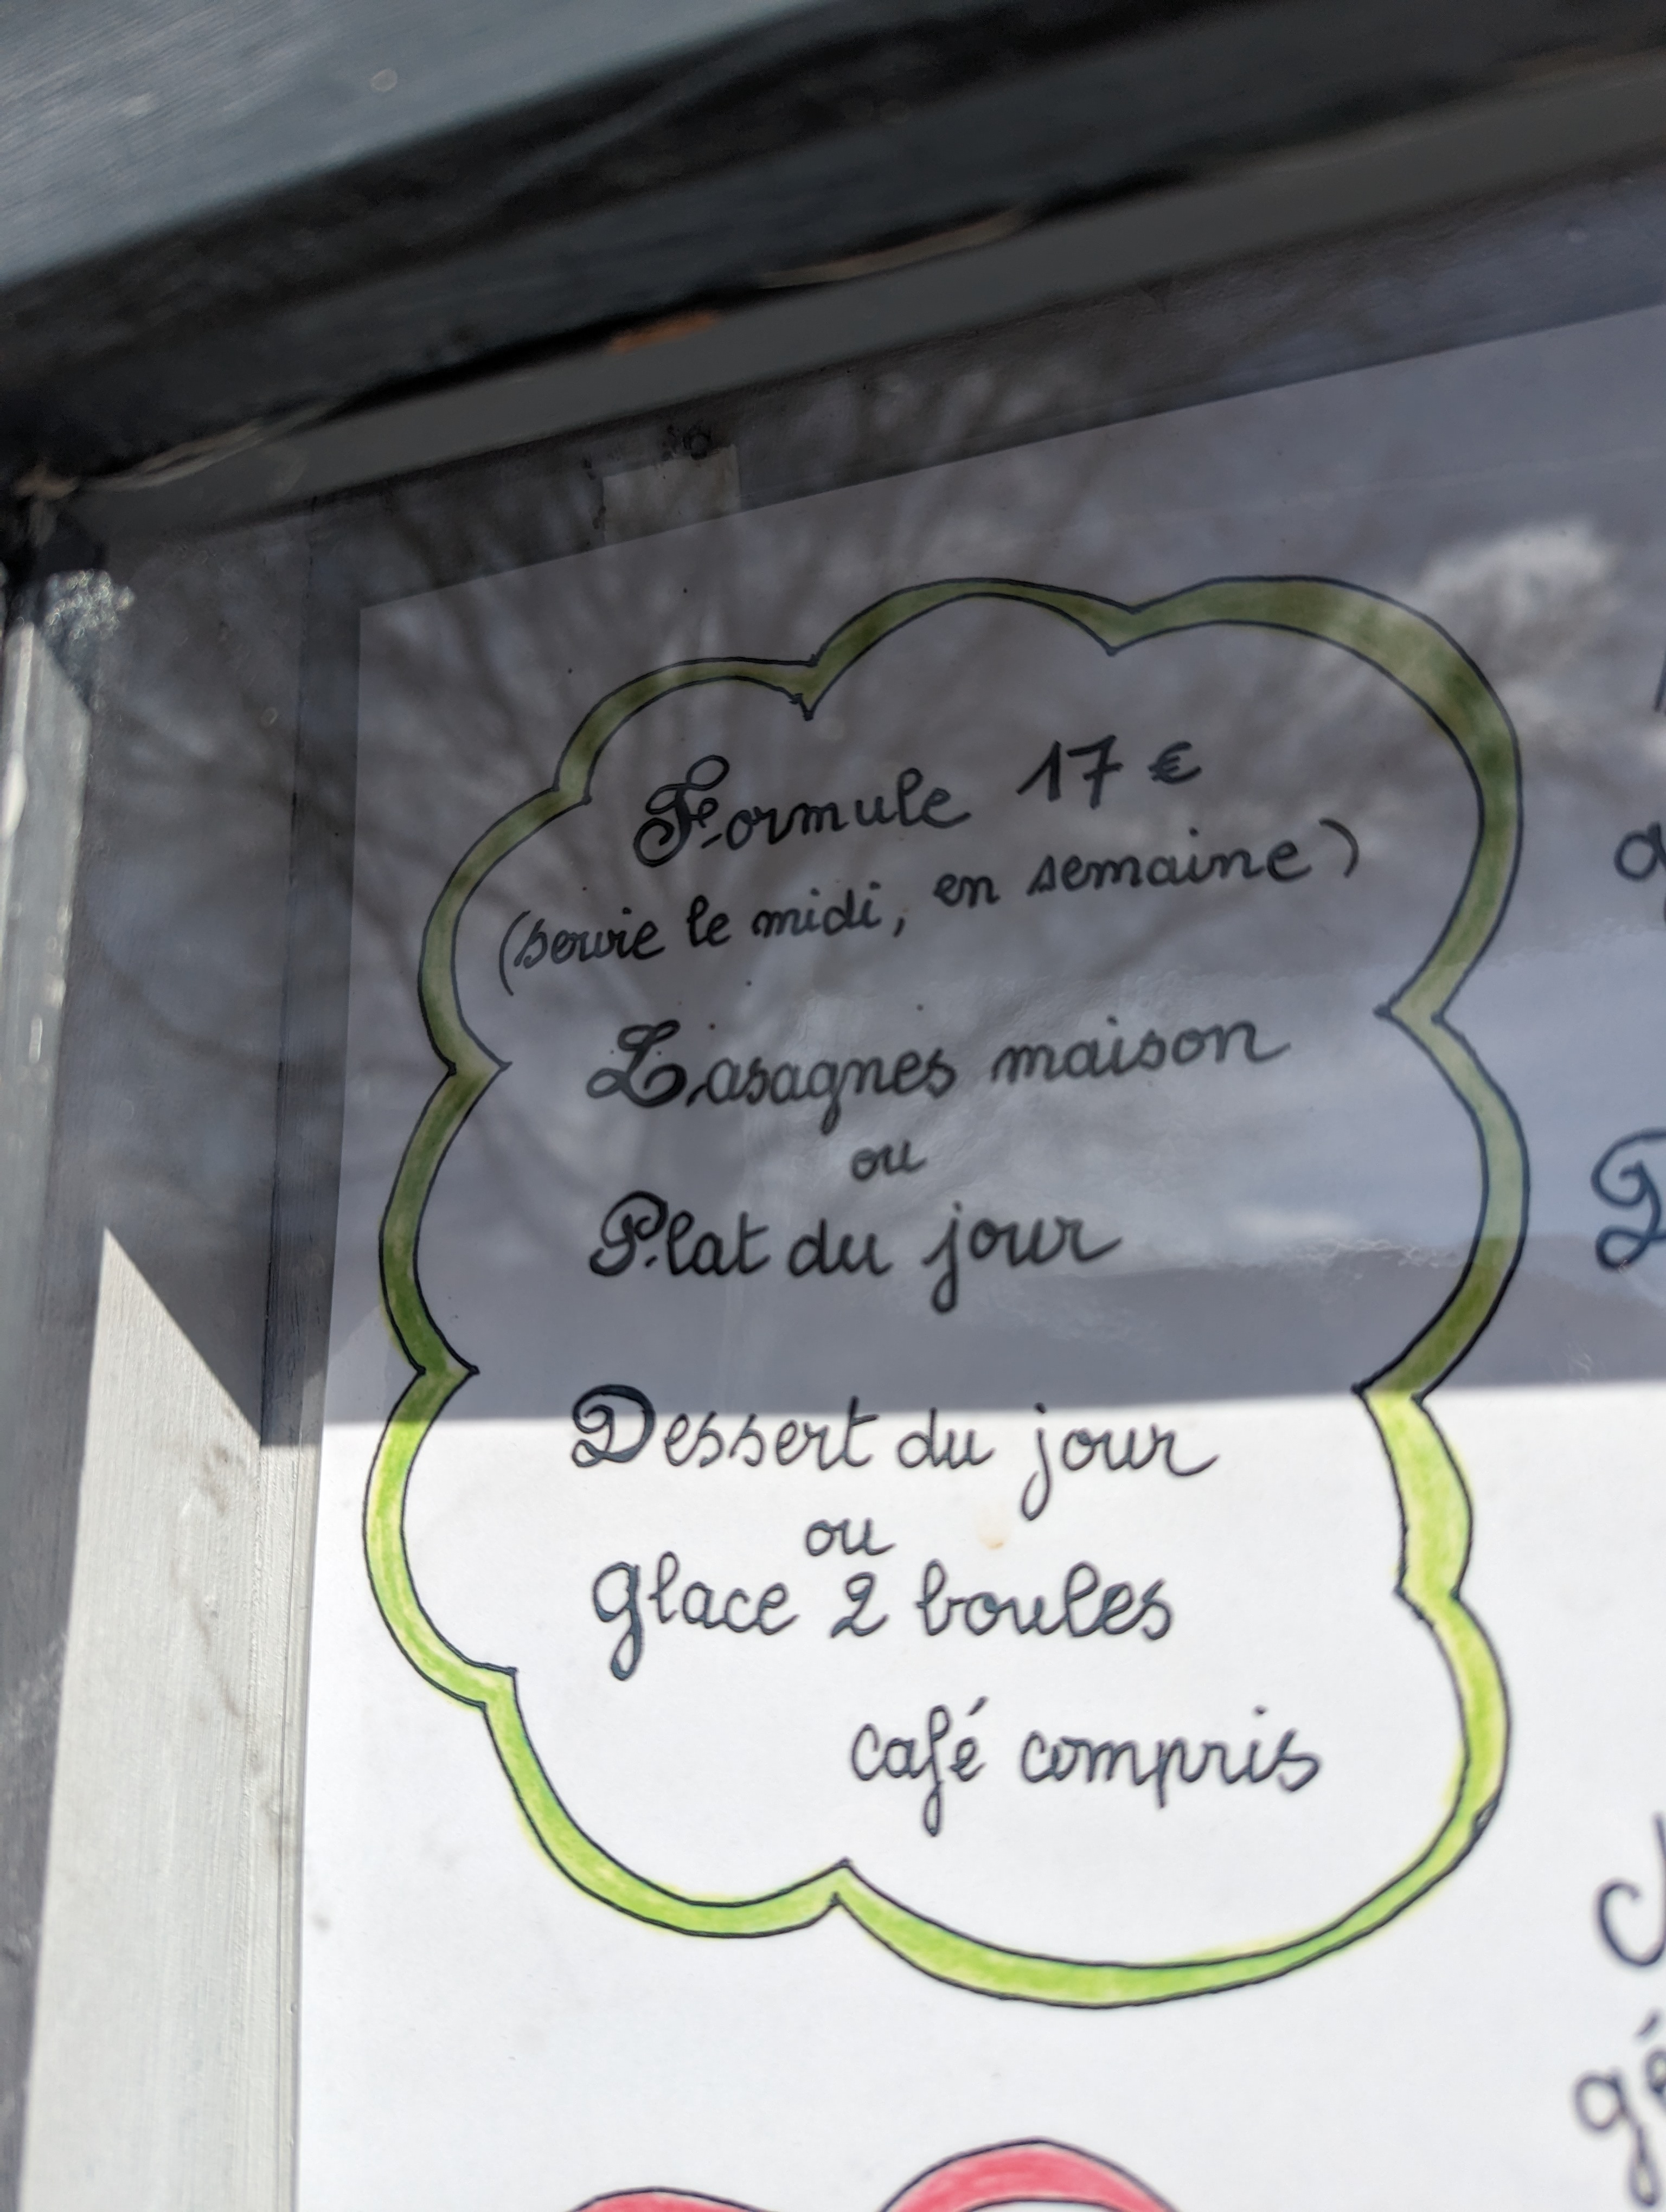 Formule 17 €
(servie le midi, en semaine)
Lasagnes maison
ou
Plat du jour
Dessert du jour
ou
glace 2 boules
café compris